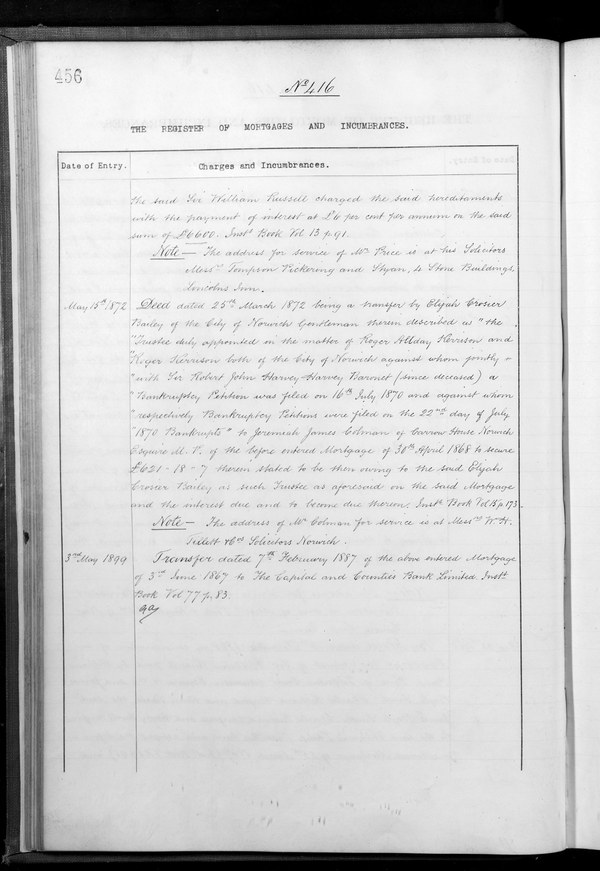 456
No 416
THE REGISTER OF MORTGAGES AND INCUMBRANCES.
Date of Entry. Charges and Incumbrances.
the said Sir William Russell charged the said hereditaments
with the payment of interest at £6 per cent per annum on the said
sum of £6600. Inst. Book Vol 13 p. 91.
Note — The address for service of Mr. Price is at his Solicitors
Messrs. Tompson Pickering and Styan, 4 Stone Buildings,
Lincolns Inn.
May 15th 1872 Deed dated 25th March 1872 being a transfer by Elijah Crosier
Bailey of the City of Norwich Gentleman therein described as "the
"Trustee duly appointed in the matter of Roger Allday Kerrison and
"Roger Kerrison both of the City of Norwich against whom jointly
"with Sir Robert John Harvey Harvey Baronet (since deceased) a
"Bankruptcy Petition was filed on 16th July 1870 and against whom
"respectively Bankruptcy Petitions were filed on the 22nd day of July
"1870 Bankrupts" to Jeremiah James Colman of Carrow House Norwich
Esquire M.P. of the before entered Mortgage of 30th April 1868 to secure
£621-18-7 therein stated to be then owing to the said Elijah
Crosier Bailey as such Trustee as aforesaid on the said Mortgage
and the interest due and to become due thereon. Inst. Book Vol 15 p 173.
Note — The address of Mr. Colman for service is at Messrs. Wm. H.
Tillett & Co Solicitors Norwich.
3rd May 1899 Transfer dated 7th February 1887 of the above entered Mortgage
of 3rd June 1867 to The Capital and Counties Bank Limited. Inst.
Book Vol 77 p. 83.